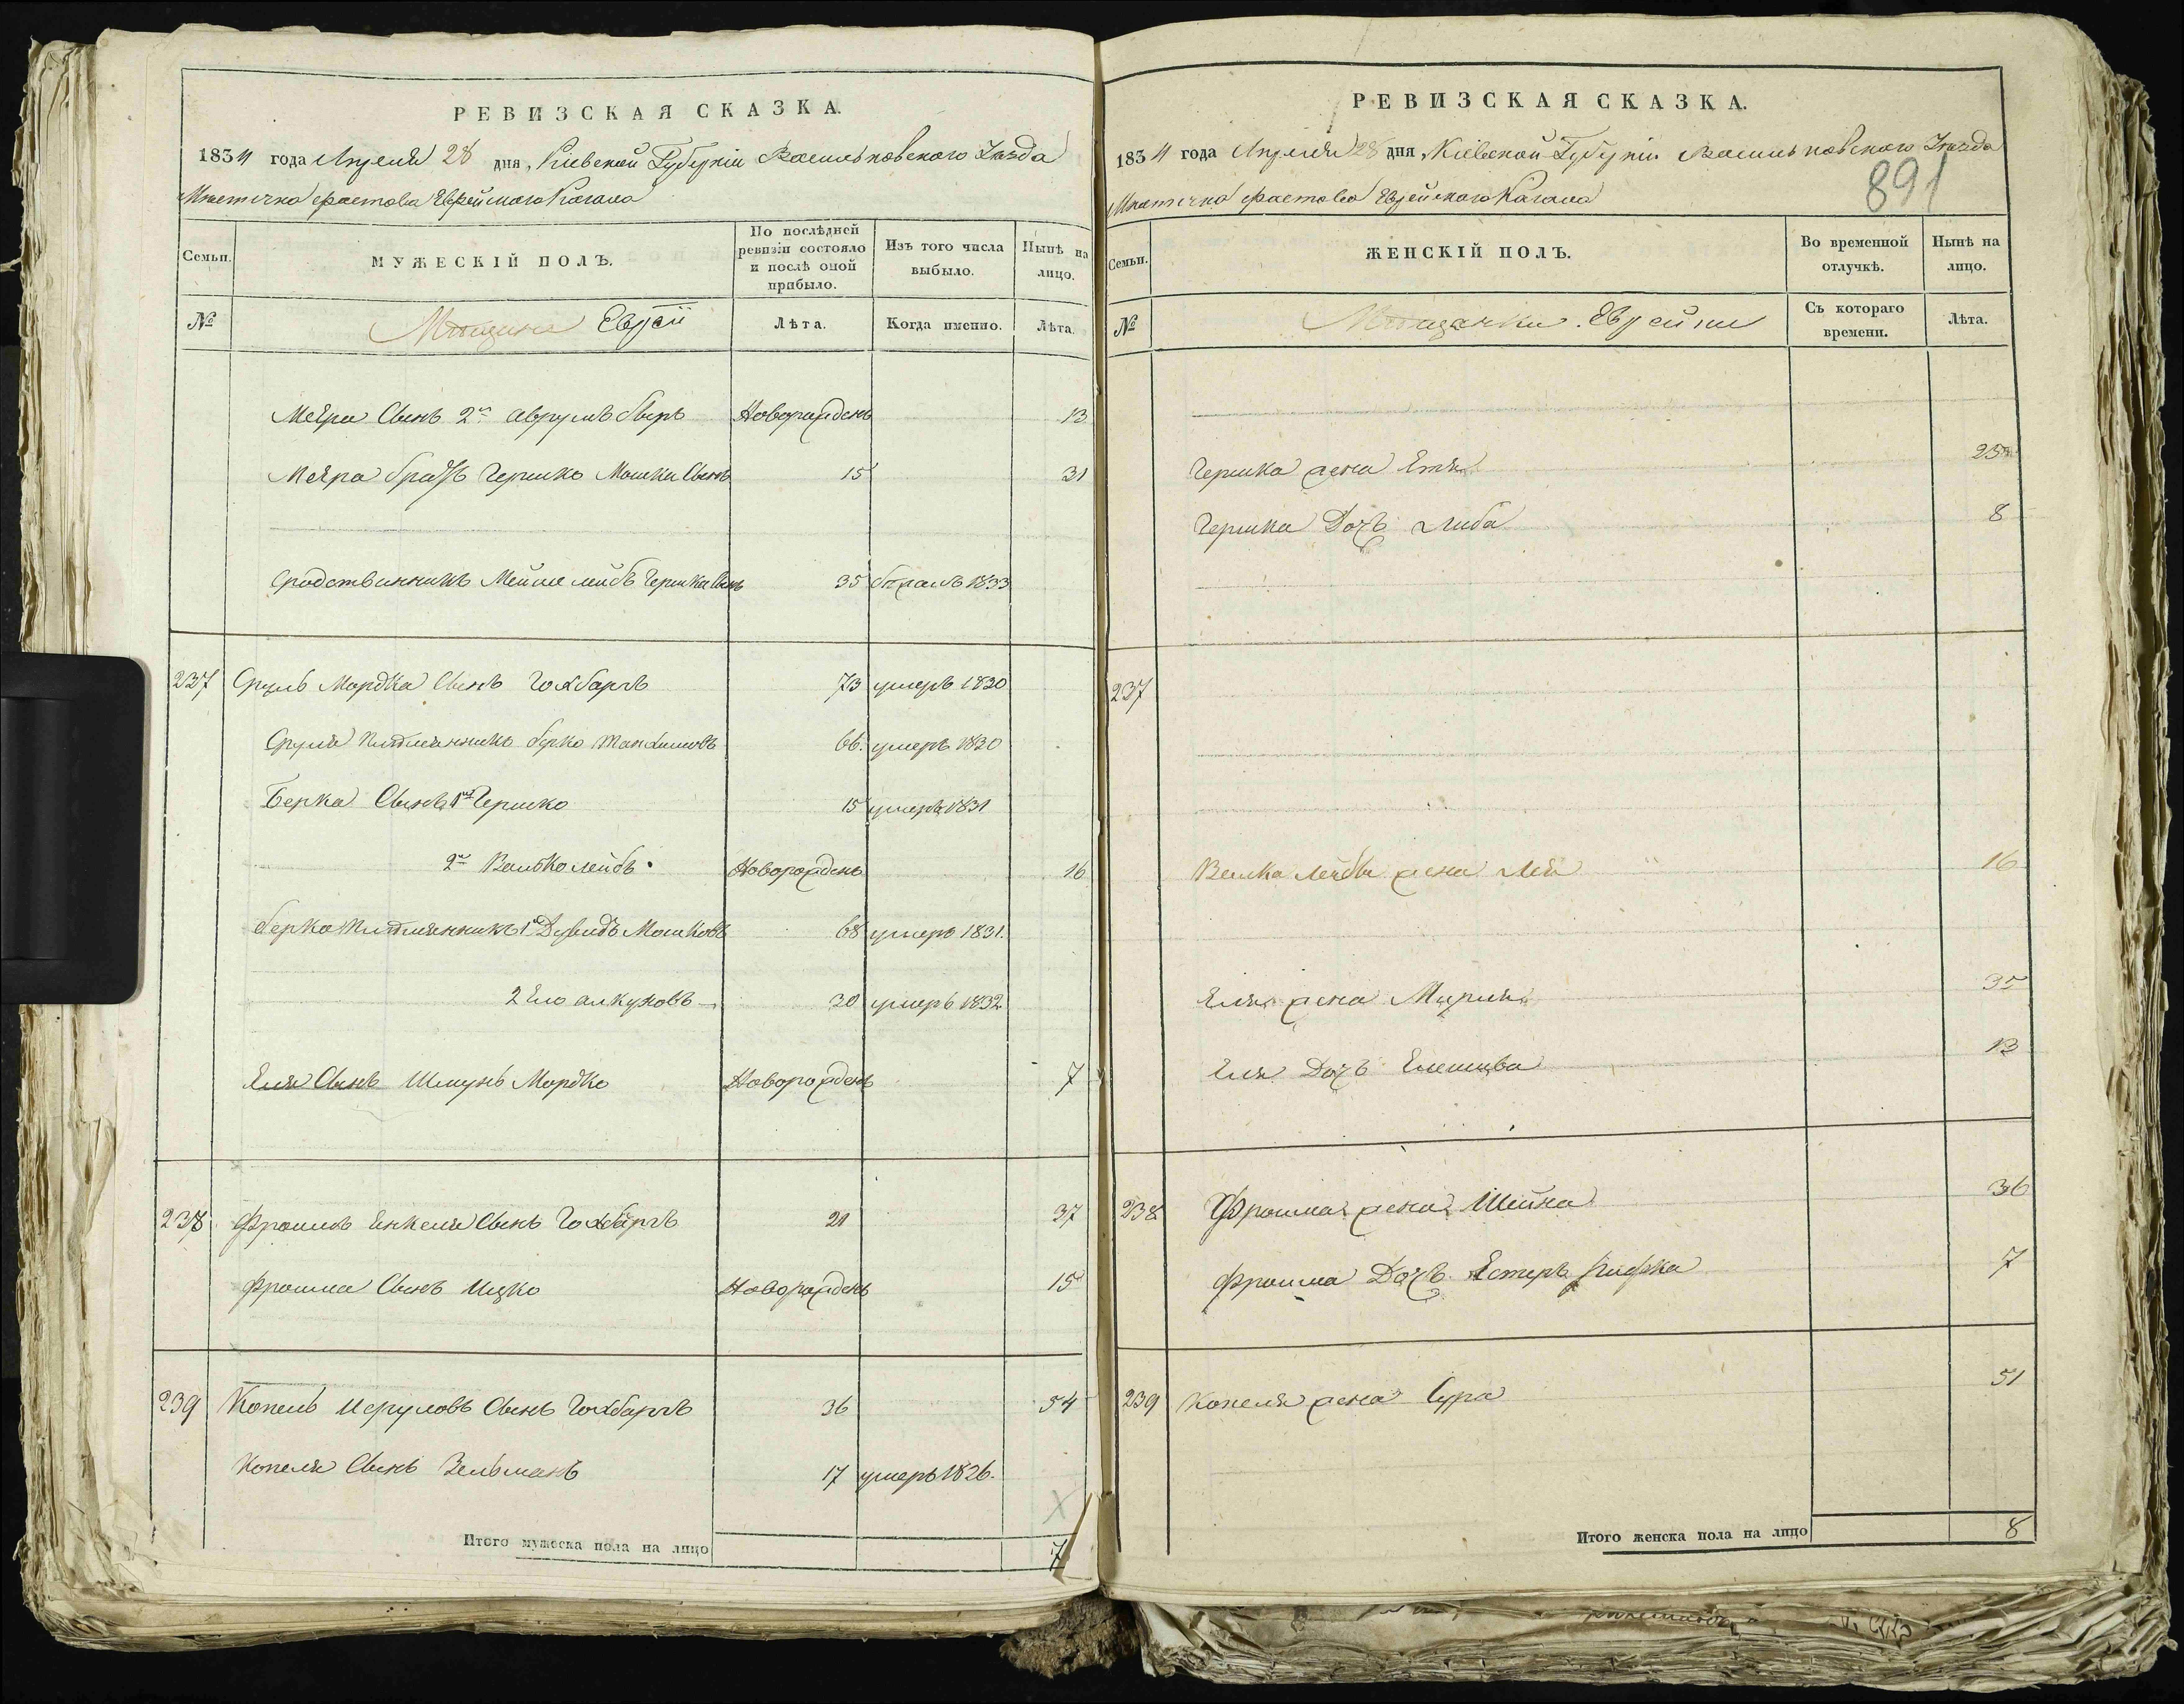 РЕВИЗСКАЯ СКАЗКА.
1834 года Апреля 28 дня, Кіевской Губерніи Васильковскаго Уезда
Местечка Фастова Еврейскаго Кагала
Семьи.
МУЖЕСКІЙ ПОЛЪ.
По послѣдней ревизіи состояло и послѣ оной прибыло.
Изъ того числа выбыло.
Нынѣ на лицо.
№
Мещане Евреи
Лѣта.
Когда именно.
Лѣта.
Меера Сынъ 2й Аврумъ Сберъ Новорожденъ 13
Меера братъ Гершко Мошки Сынъ 15 31
Сродственникъ Мейше лейбъ Гершка Сынъ 35 бежалъ 1833
237 Сруль Мордка Сынъ Гохбаргъ 73 умеръ 1830
Сруля племянникъ берко 66. умеръ 1830
Берка Сынъ 1й Гершко 15 умеръ 1831
2й Валько лейбъ Новорожденъ 16
берка племянникъ 1й Дувидъ Мошковъ 68 умеръ 1831.
2 Ело 30 умеръ 1832
Еля Сынъ Шмунь Мордко Новорожденъ 7
238 Фроимъ Енкеля Сынъ Гохбаргъ 21 37
Фроима Сынъ Ицко Новорожденъ 15
239 Копель Исруловъ Сынъ Гохбаргъ 36 54
Копеля Сынъ Зельманъ 17 умеръ 1826.
Итого мужеска пола на лицо 7
РЕВИЗСКАЯ СКАЗКА.
1834 года Апреля 28 дня, Кіевской Губерніи Васильковскаго Уезда
891
Местечка Фастова Еврейскаго Кагала
Семьи.
ЖЕНСКІЙ ПОЛЪ.
Во временной отлучкѣ.
Нынѣ на лицо.
№
Мещанки Еврейки
Съ котораго времени.
Лѣта.
Гершка жена Етя 25
Гершка Дочь Либа 8
237
Валка Лейбы жена Лея 16
Еля жена Маріня 35
Еля Дочь 13
238 Фроима жена Шейна 36
Фроима Дочь Естеръ Рифка 7
239 Копеля жена Сура 51
Итого женска пола на лицо 8